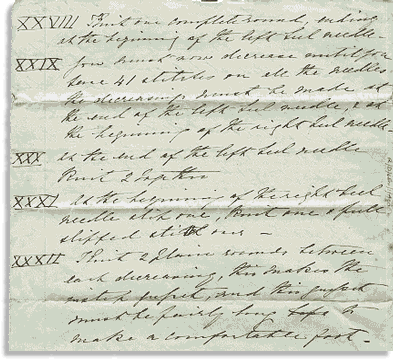 XXVIII Knit one complete round, ending
at the beginning of the left heel needle.
XXIX You must now decrease until you
have 41 stitches on all the needles
the decreasings must be made at
the end of the left heel needle, & at
the beginning of the right heel needle.
XXX At the end of the left heel needle
Knit 2 together
XXXI At the beginning of the right heel
needle slip one, Knit one & pull
slipped stitch over —
XXXII Knit 2 plain rounds between
each decreasing, this makes the
instep gusset, and this gusset
must be fairly long to
make a comfortable foot —